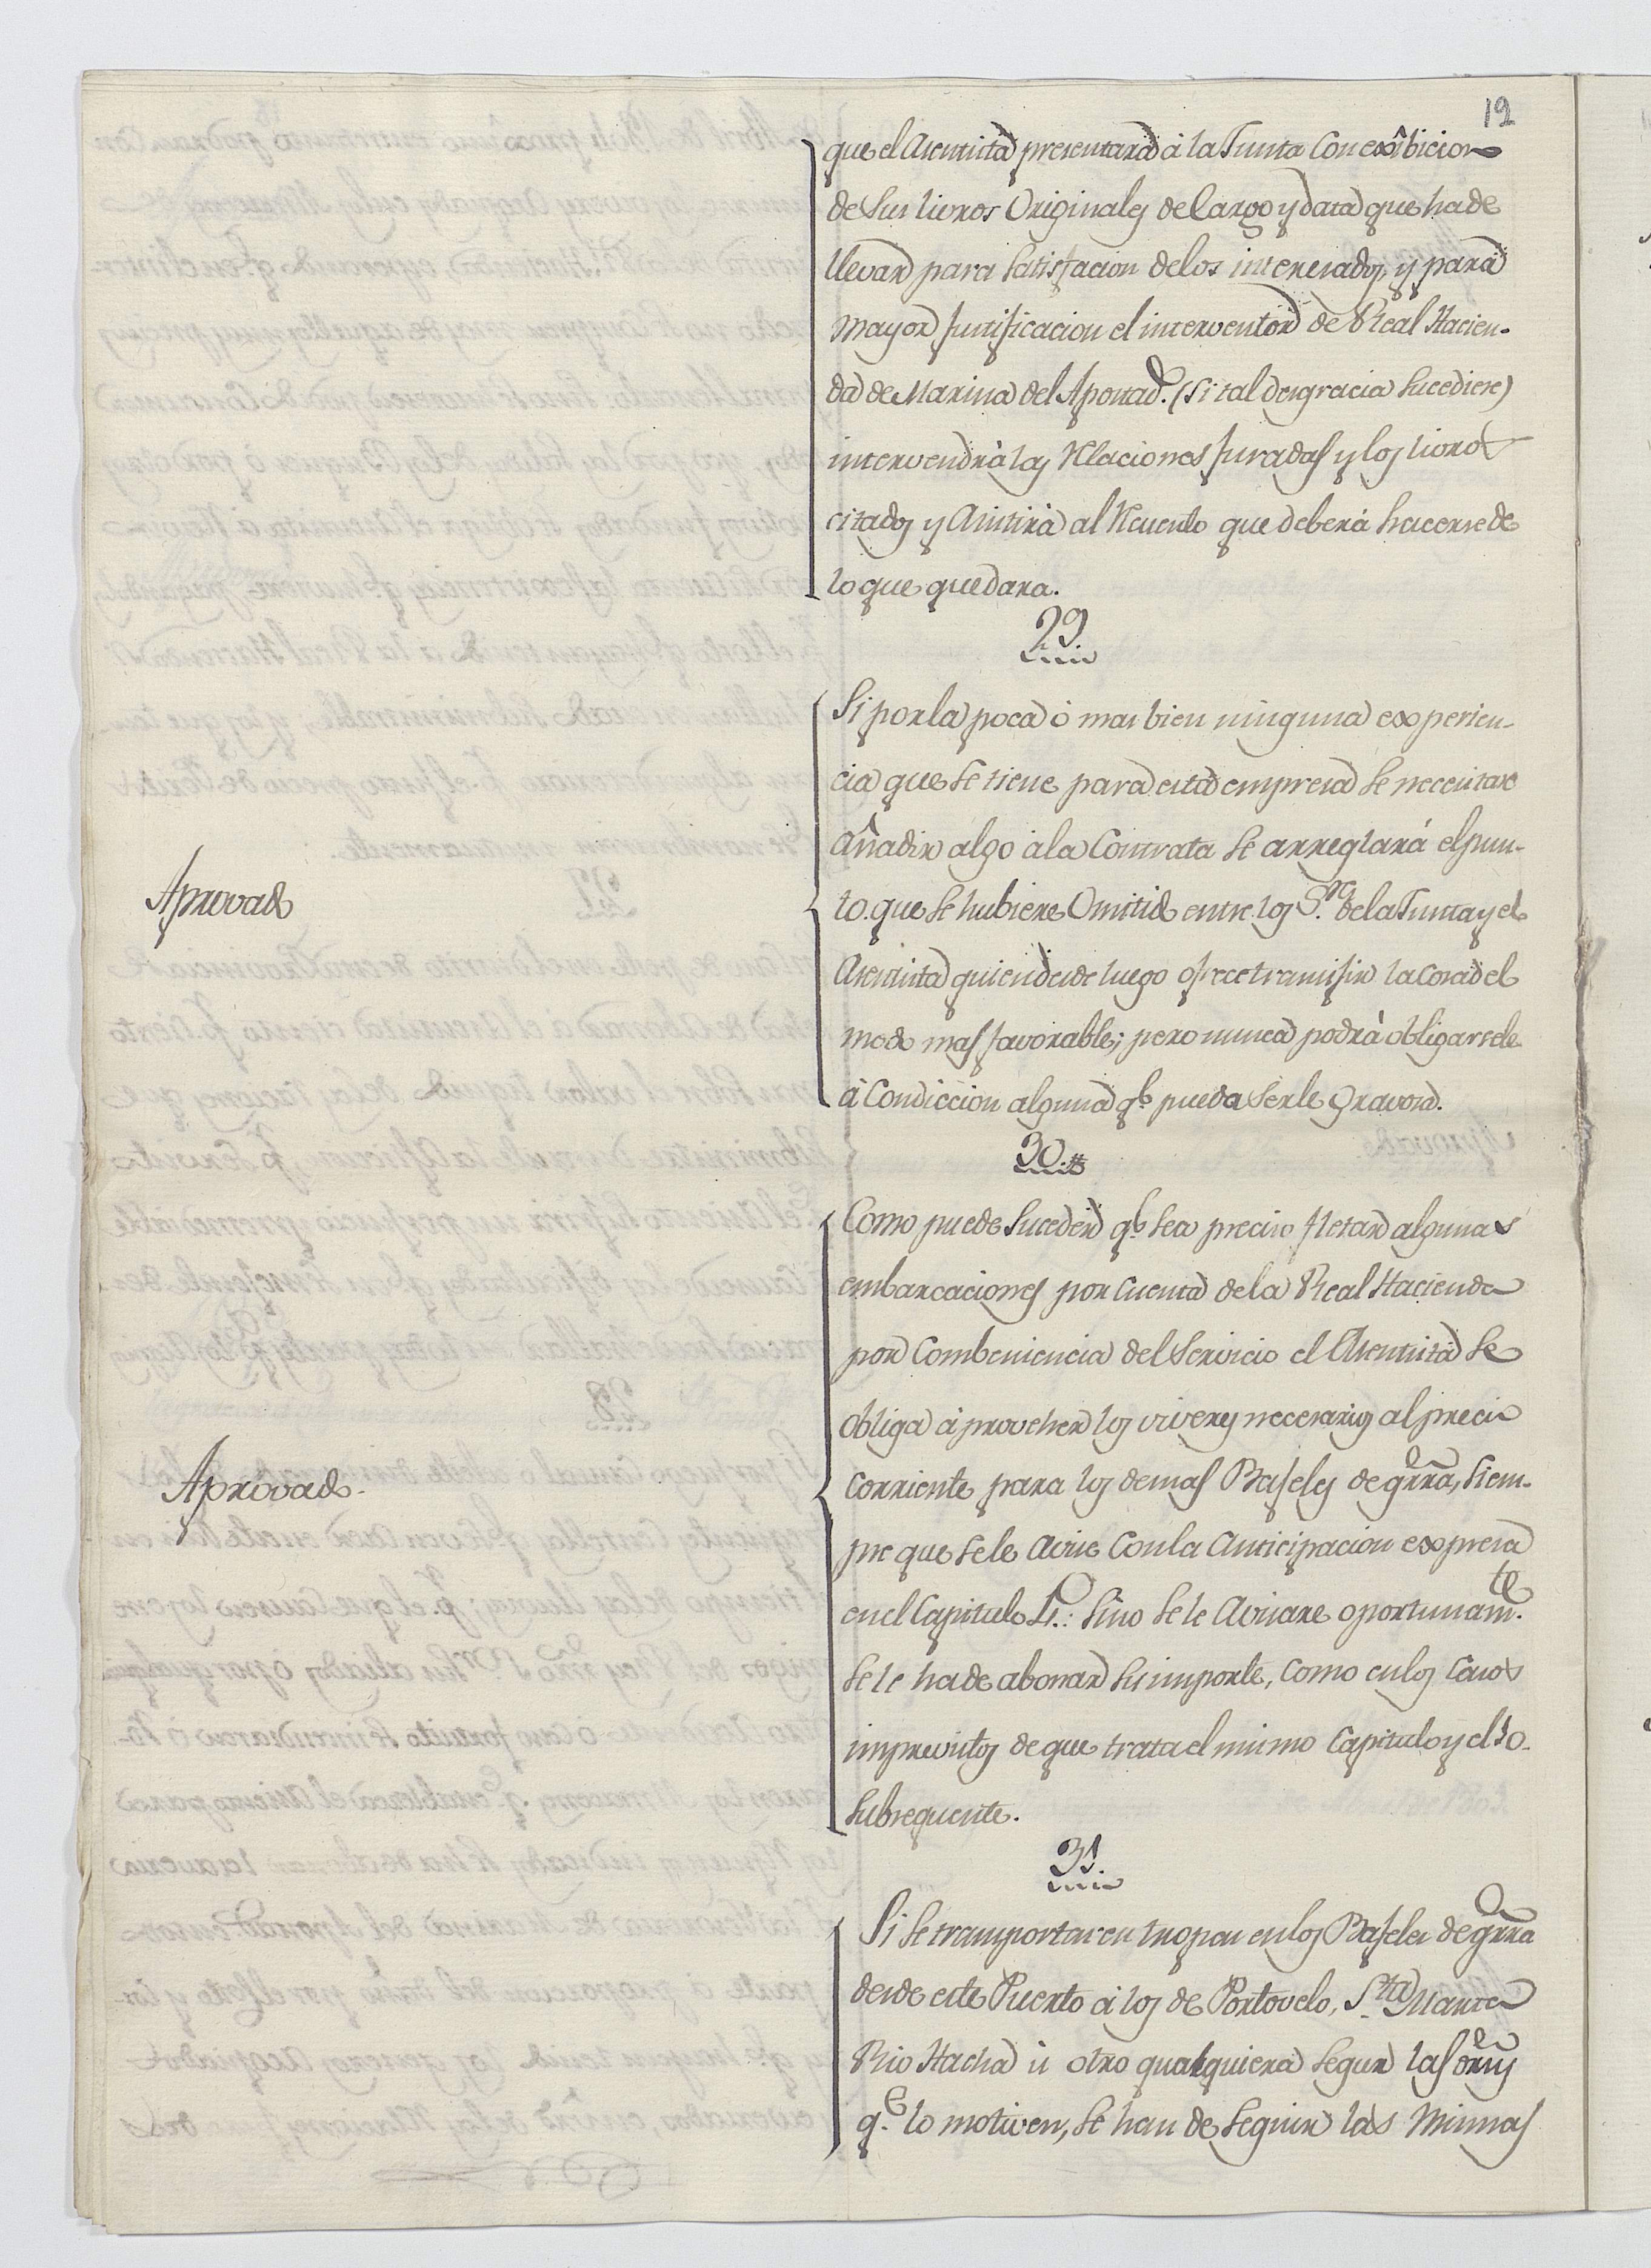 12
que el Asentista presentará à la Junta con exîbicion
de sus livros Originales de Cargo y data que ha de
llevar para satisfacion de los interesados, y para
mayor justificacion el interventor de Real Hacien-
da de Marina del Apostad.º (si tal desgracia sucediere)
intervendrà las Relaciones juradas y los livros
citados y asistirà al Recuento que deberá hacerse de
lo que quedara.
29.
Si por la poca ó mas bien ninguna experien-
cia que se tiene para esta empresa se necesitare
añadir algo à la Contrata se arreglará el pun-
Aprovado
to que se hubiere Omitido entre los S.res de la Junta y el
Asentista quien desde luego ofrece transijir la cosa del
modo mas favorable; pero nunca podrà obligarsele
à Condiccion alguna q.e pueda serle gravosa.
30.
Como puede suceder q.e sea preciso fletar algunas
embarcaciones por cuenta de la Real Hacienda
por Combeniencia del Servicio el Asentista se
obliga à proveher los viveres necesarios al precio
Aprovado.
corriente para los demas Bajeles de grra, siem-
pre que se le avise con la anticipacion expresa
en el Capitulo 4.º: sino se le avisare oportunam.te
se le ha de abonar su importe, como en los casos
imprevistos de que trata el mismo Capitulo y el 10.
subsequente.
31.
Si se transportaren tropas en los Bajeles de grra
desde este Puerto à los de Portovelo, S.ta Marta
Rio Hacha ù otro qualquiera segun las orns
q.e lo motiven, se han de seguir las mismas